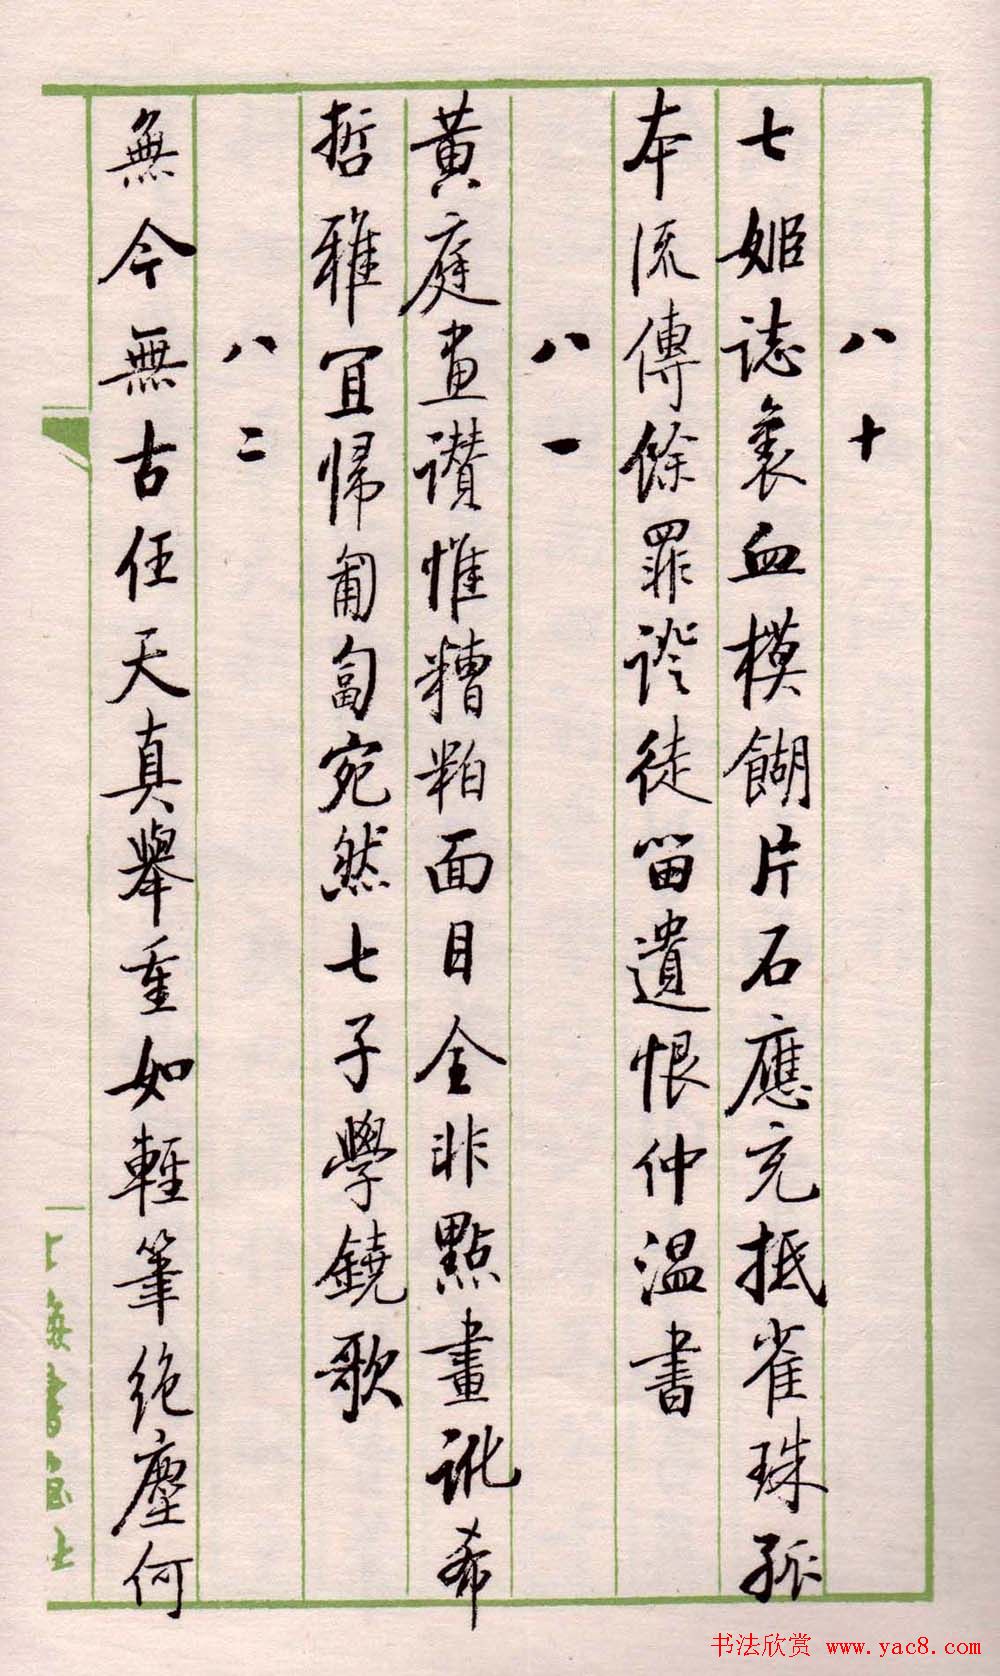 八十
七姬誌裏血模餬片石應充抵雀珠孤
本流傳餘罪證徒留遺恨仲温書
八一
黄庭畫讚惟糟粕面目全非點畫訛希
哲雅宜歸匍匐宛然七子學鐃歌
八二
無今無古任天真舉重如輕筆絶塵何
书法欣赏 www.yac8.com